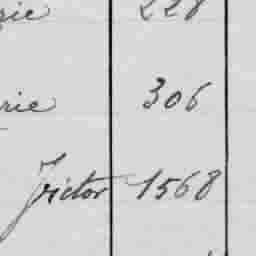 rie 228
rie 306
Victor 1568